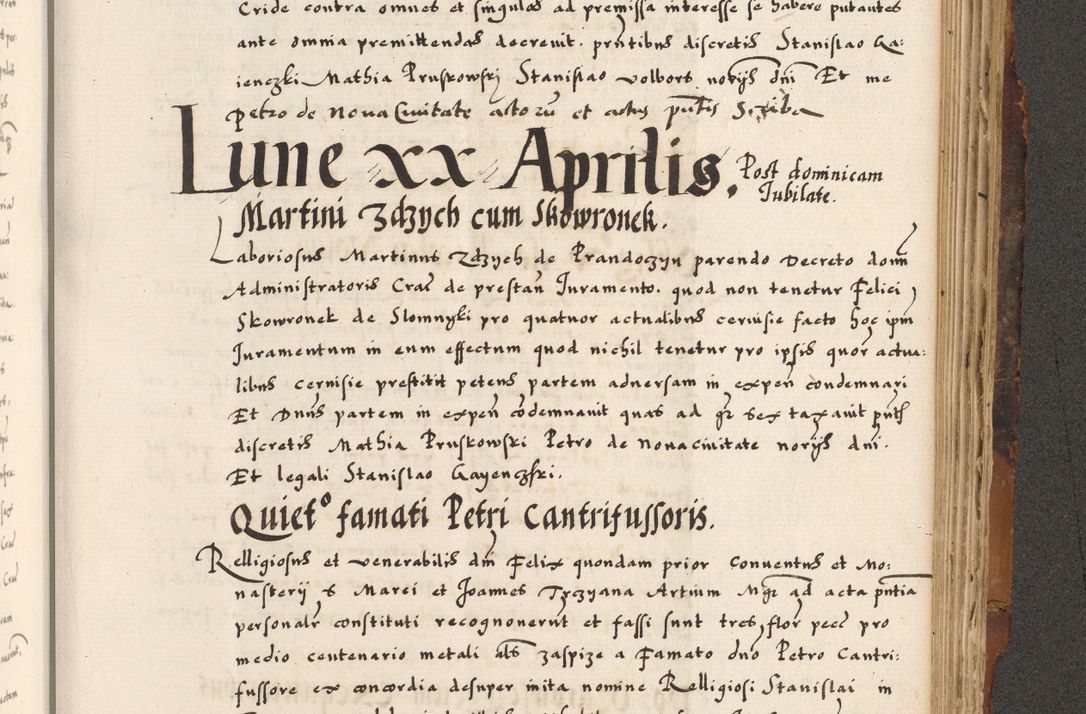 Cride contra omnes et singulas ad premissa interesse se habere putantes
ante omnia premittendas decrevit. pn̄tibus discretis Stanislao Ga:
ienczki Mathia Pruskowski Stanislao volbors norijs dnī Et me
Petro de Nova Civitate actorū et actus pn̄tis Scriba
Lune xx Aprilis. Post dominicam
Jubilate.
Martini Zdzych cum Skowronek.
Laboriosus Martinus Zdzych de Prandoczyn parendo Decreto domī
Administratoris Crac̄ de prestan̄ Juramento. quod non tenetur Felici
Skowronek de Slomnyki pro quatuor actualibus cerviisie facto hoc ipm̄
Juramentum in eum effectum quod nichil tenetur pro ipsis quor̄ actua:
libus cervisie prestitit petens partem adversam in expen̄ condemnari
Et Dnūs partem in expen̄ cōdemnavit quas ad gr̄ sex taxavit pn̄tibus
discretis Mathia Pruskowski Petro de Nova civitate norijs dnī.
Et legali Stanislao Gayenczski.
Quiet⁰ famati Petri Cantrifussoris.
Relligiosus et venerabilis dnī Felix quondam prior Conventus et Mo:
nasterij S Marci et Joannes Trzyana Artium Mgr̄ ad acta pn̄tia
personalr̄ constituti recognoverūt et fassi sunt tres flor̄ pecc̄ pro
medio centenario metali als̄ zaspize a Famato dnō Petro Cantri:
fussore ex concordia desuper inita nomine Relligiosi Stanislai in